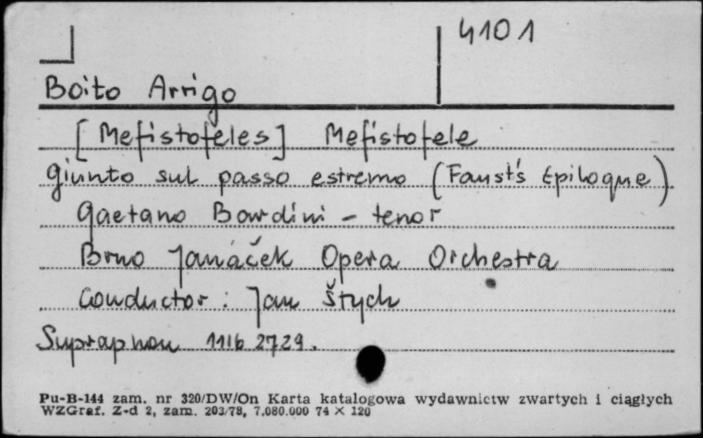 4101
Boito Arrigo
[Mefistofeles] Mefistofele
Giunto sul passo estremo (Faust's Epilogue)
Gaetano Bardini - tenor
Brno Janáček Opera Orchestra
Conductor: Jan Štych
Supraphon 1116 2729.
Pu-B-144 zam. nr 320/DW/On Karta katalogowa wydawnictw zwartych i ciągłych
WZGraf. Z-d 2, zam. 203/78, 7.080.000 74 × 120